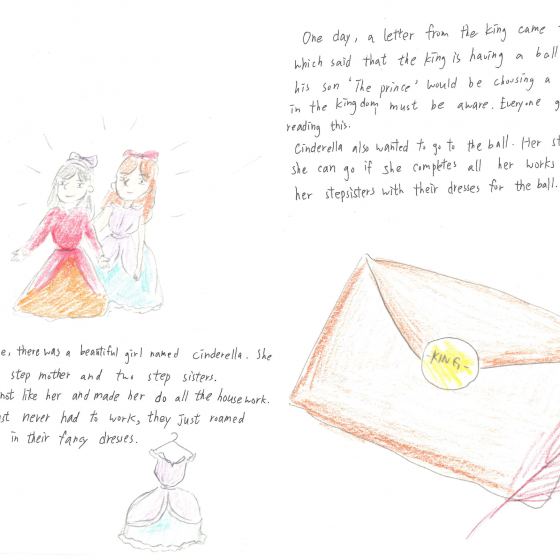 e, there was a beautiful girl named cinderella. She
step mother and two step sisters.
not like her and made her do all the housework.
st never had to work, they just roamed
in their fancy dresses.
One day, a letter from the King came
which said that the king is having a ball
his son 'The prince' would be choosing a
in the kingdom must be aware. Everyone g
reading this.
Cinderella also wanted to go to the ball. Her st
she can go if she completes all her works
her stepsisters with their dresses for the ball.
KING